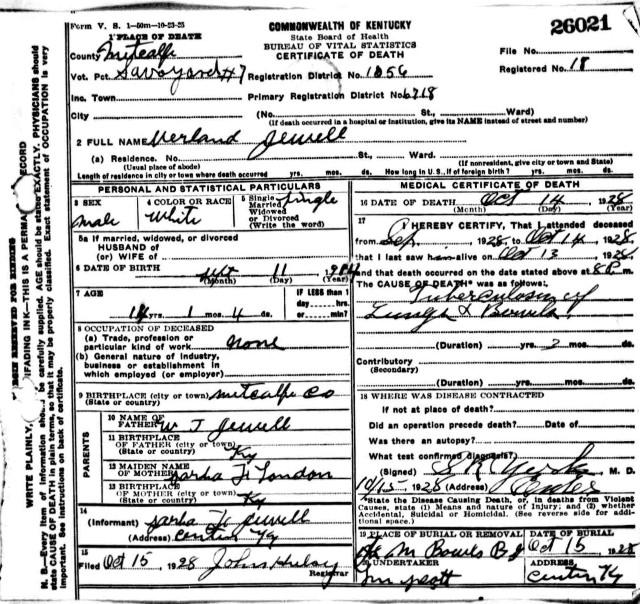 Form V. S. 1—50m—10-23-25
26021
COMMONWEALTH OF KENTUCKY
State Board of Health
BUREAU OF VITAL STATISTICS
CERTIFICATE OF DEATH
1 PLACE OF DEATH
County Metcalfe
Vot. Pct. Savoyard #7 Registration District No. 1056
File No.
Registered No. 18
Inc. Town Primary Registration District No. 6718
City (No. St., Ward)
(If death occurred in a hospital or institution, give its NAME instead of street and number)
2 FULL NAME Verland Jewell
(a) Residence. No. St., Ward.
(Usual place of abode) (If nonresident, give city or town and State)
Length of residence in city or town where death occurred yrs. mos. ds. How long in U.S., if of foreign birth? yrs. mos. ds.
PERSONAL AND STATISTICAL PARTICULARS
3 SEX
male
4 COLOR OR RACE
White
5 Single
Married
Widowed
or Divorced
(Write the word)
Single
5a If married, widowed, or divorced
HUSBAND of
(or) WIFE of
6 DATE OF BIRTH 11
(Month) (Day) (Year)
7 AGE
yrs. 1 mos. 4 ds.
IF LESS than 1
day hrs.
or min.?
8 OCCUPATION OF DECEASED
(a) Trade, profession or
particular kind of work none
(b) General nature of industry,
business or establishment in
which employed (or employer)
9 BIRTHPLACE (city or town) Metcalfe Co
(State or country)
PARENTS
10 NAME OF
FATHER W J Jewell
11 BIRTHPLACE
OF FATHER (city or town)
(State or country) Ky
12 MAIDEN NAME
OF MOTHER Sarha F London
13 BIRTHPLACE
OF MOTHER (city or town)
(State or country) Ky
14
(Informant) Sarha F Jewell
(Address) Center Ky
15
Filed Oct 15, 1928 John Huley
Registrar
MEDICAL CERTIFICATE OF DEATH
16 DATE OF DEATH Oct 14 1928
(Month) (Day) (Year)
17
I HEREBY CERTIFY, That I attended deceased
from Sep, 1928, to Oct 14, 1928
that I last saw him alive on Oct 13, 1928,
and that death occurred on the date stated above at 8 P. m.
The CAUSE OF DEATH* was as follows:
Tuberculosus of
Lungs & Bowels
(Duration) yrs. 2 mos. ds.
Contributory
(Secondary)
(Duration) yrs. mos. ds.
18 WHERE WAS DISEASE CONTRACTED
If not at place of death?
Did an operation precede death? Date of
Was there an autopsy?
What test confirmed diagnosis?
(Signed) M. D.
10/15-1928 (Address) Center
*State the Disease Causing Death, or, in deaths from Violent
Causes, state (1) Means and nature of Injury; and (2) whether
Accidental, Suicidal or Homicidal. (See reverse side for addi-
tional space.)
19 PLACE OF BURIAL OR REMOVAL DATE OF BURIAL
M Bowls Oct 15 1928
UNDERTAKER ADDRESS
Center Ky
WRITE PLAINLY, UNFADING INK—THIS IS A PERMA RECORD
N. B.—Every item of information should be carefully supplied. AGE should be stated EXACTLY. PHYSICIANS should
state CAUSE OF DEATH in plain terms, so that it may be properly classified. Exact statement of OCCUPATION is very
important. See instructions on back of certificate.